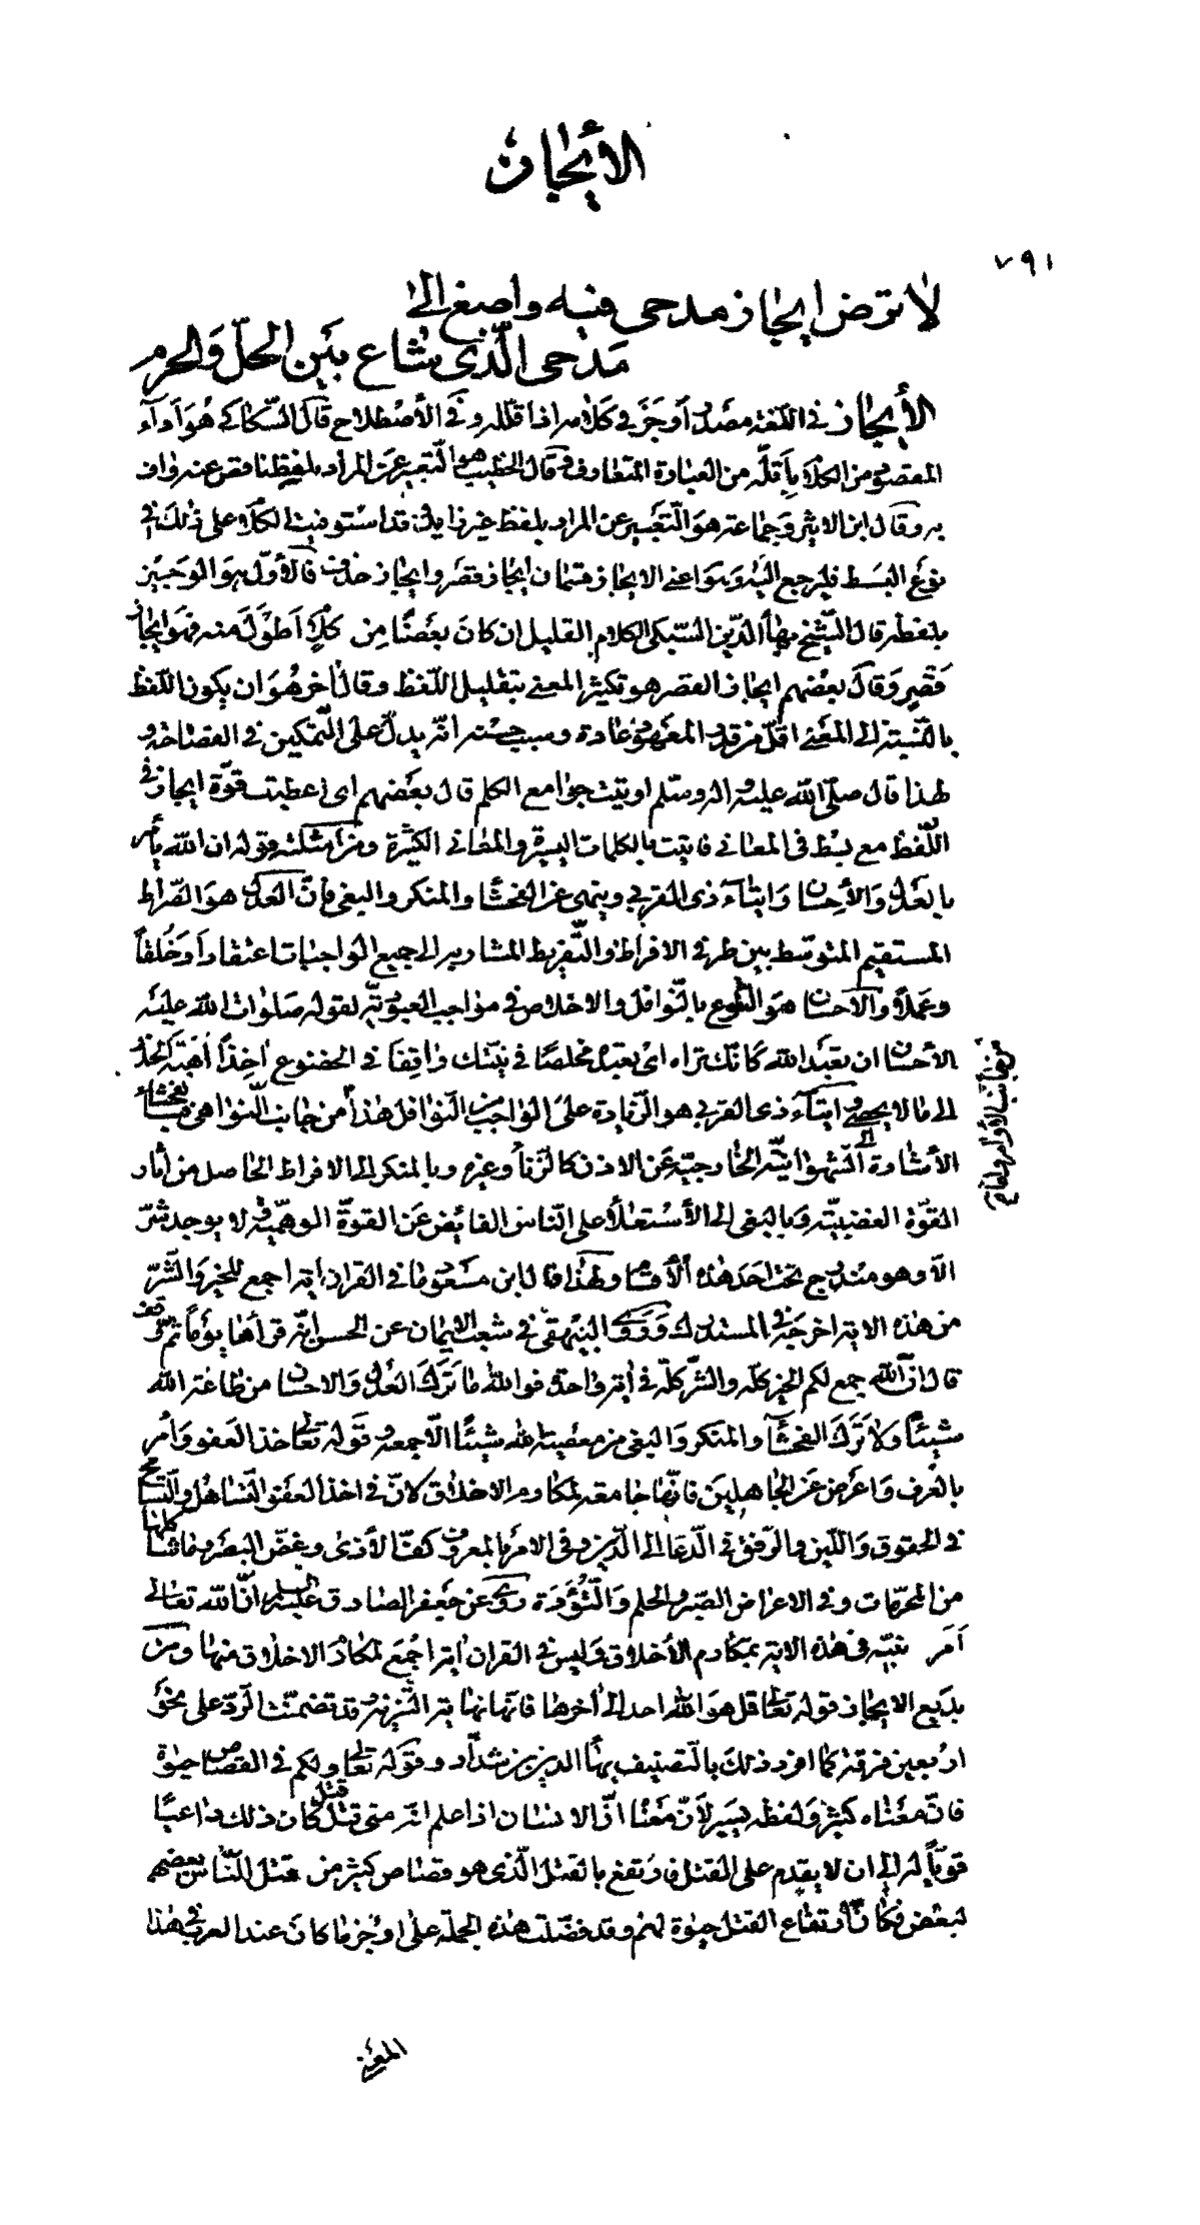 الأيجاز
٧٩١
لا ترض ايجاز مدحى فيه واصغ الى
مدحى الّذى شاع بين الحلّ والحرم
الأيجاز فى اللّغة مصدر اوجز فى كلامه اذا قلّله وفى الأصطلاح قال السّكاكى هو اداء
المقصود من الكلام باقلّ من العبارة المتعارف وقال الخطيب هو التّعبير عن المراد بلفظ ناقص عنه واف
به وقال ابن الاثير وجماعة هو التّعبير عن المراد بلفظ غير زايد وقد استوفيت الكلام على ذلك فى
نوع البسط فليرجع اليه وهو اعنى الايجاز قسمان ايجاز قصر وايجاز حذف فالأوّل هو الوجيز
بلفظه قال الشّيخ بهاء الدّين السّبكى الكلام القليل ان كان بعضًا من كلام اطول منه فهو ايجاز
قصر وقال بعضهم ايجاز القصر هو تكثير المعنى بتقليل اللّفظ وقال اخر هو ان يكون اللّفظ
بالنّسبة الى المعنى اقلّ من قدر المعهود عادة وسبب حسنه انّه يدلّ على التّمكين فى الفصاحة و
لهذا قال صلّى الله عليه واله وسلّم اوتيت جوامع الكلم قال بعضهم اى اعطيت قوّة ايجاز فى
اللّفظ مع بسط فى المعانى فاتيت بالكلمات اليسيرة والمعانى الكثيرة ومن امثلته قوله ان الله يأمر
بالعدل والأحسان وايتاء ذى القربى وينهى عن الفحشاء والمنكر والبغى فانّ العدل هو الصّراط
المستقيم المتوسّط بين طرفى الافراط والتّفريط المشار به الى جميع الواجبات اعتقاداً وخلقاً
وعملاً والأحسان هو التّطوع بالنّوافل والاخلاص فى مواجب العبوديّة لقوله صلوات الله عليه
الأحسان ان تعبد الله كانّك تراه اى تعبده مخلصًا فى نيّتك واقفًا فى الخضوع اخذًا اهبة الحذر
الى ما لا يحصى وايتاء ذى القربى هو الزّيادة على الواجب من النّوافل هذا من جانب النّواهى فبالفحشاء
الأشارة الى الشّهوانيّة الخارجيّة عن الاذن كالزّنا وغيره وبالمنكر الى الافراط الحاصل من اثار
القوّة الغضبيّة وبالبغى الى الأستعلاء على النّاس الفائض عن القوّة الوهميّة ولا يوجد شرّ
الّا وهو مندرج تحت احد هذه الأقسام ولهذا قال ابن مسعود ما فى القران اية اجمع للخير والشّرّ
من هذه الاية اخرجه فى المستدرك وروى البيهقى فى شعب الايمان عن الحسن انّه قرأها يوماً ثمّ وقف
قال انّ الله جمع لكم الخير كلّه والشّر كلّه فى اية واحدة فوالله ما ترك العدل والاحسان من طاعة الله
شيئًا ولا ترك الفحشاء والمنكر والبغى من معصية الله شيئًا الّا جمعه وقوله تعالى خذ العفو وأمر
بالعرف واعرض عن الجاهلين فانّها جامعة لمكارم الاخلاق لانّ فى اخذ العفو التّساهل والتّسامح
فى الحقوق واللّين والرّفق فى الدّعاء الى الدّين وفى الامر بالمعروف كفّ الأذى وغضّ البصر وما شاكلهما
من المحرّمات وفى الاعراض الصّبر والحلم والتّؤدة روى عن جعفر الصادق عليه السلم انّ الله تعالى
امر نبيّه فى هذه الاية بمكارم الأخلاق وليس فى القران اية اجمع لمكارم الاخلاق منها ومن
بديع الايجاز قوله تعالى قل هو الله احد الى اخرها فانّها نهاية التّنزيه وقد تضمنّت الرّد على نحو
اربعين فرقة كما افرد ذلك بالتّصنيف بهاء الدين بن شدّاد وقوله تعالى ولكم فى القصاص حيوة
فانّ معناه كثير ولفظه يسير لأنّ معناه انّ الانسان اذا علم انّه متى قتل قتل كان ذلك داعيًا
قويّاً له الى ان لا يقدم على القتل فارتفع بالقتل الّذى هو قصاص كثير من قتل النّاس بعضهم
لبعض فكان ارتفاع القتل حيوة لهم وقد فضّلت هذه الجملة على اوجز ما كان عند العرب فى هذا
المعنى